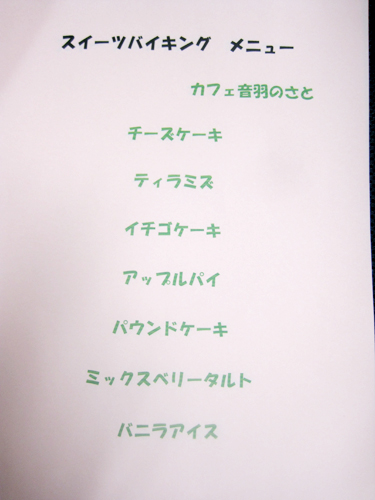 スイーツバイキング　メニュー
カフェ音羽のさと
チーズケーキ
ティラミズ
イチゴケーキ
アップルパイ
パウンドケーキ
ミックスペリータルト
バニラアイス